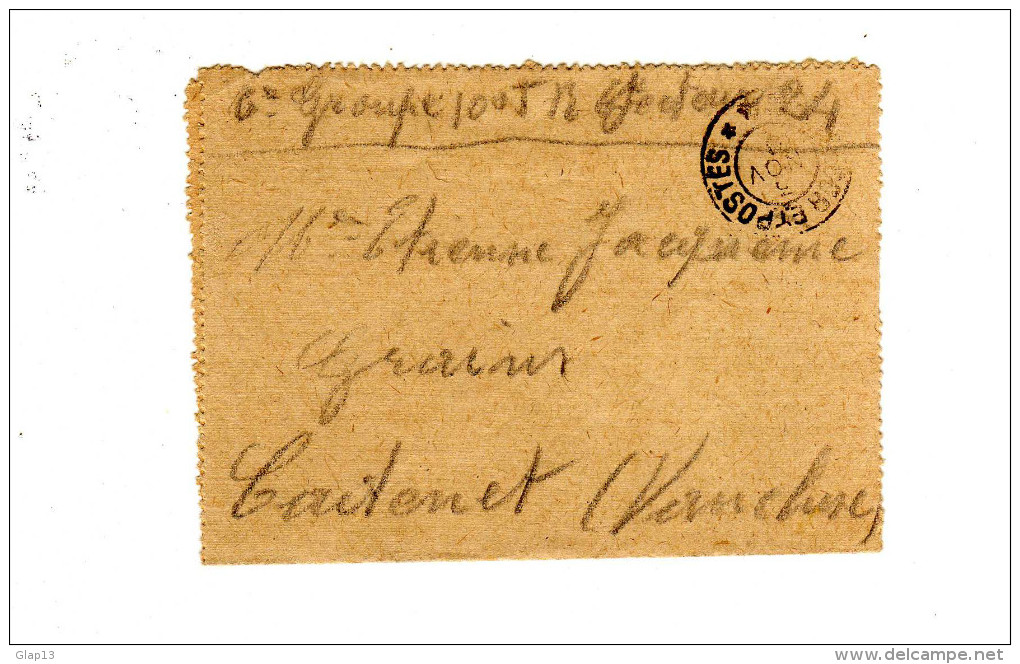 6e Groupe 100 T R Secteur 24
TRESOR ET POSTES *
NOV
Mr Etienne Jacqueme
Grains
Cadenet (Vaucluse)
Glap13
www.delcampe.net